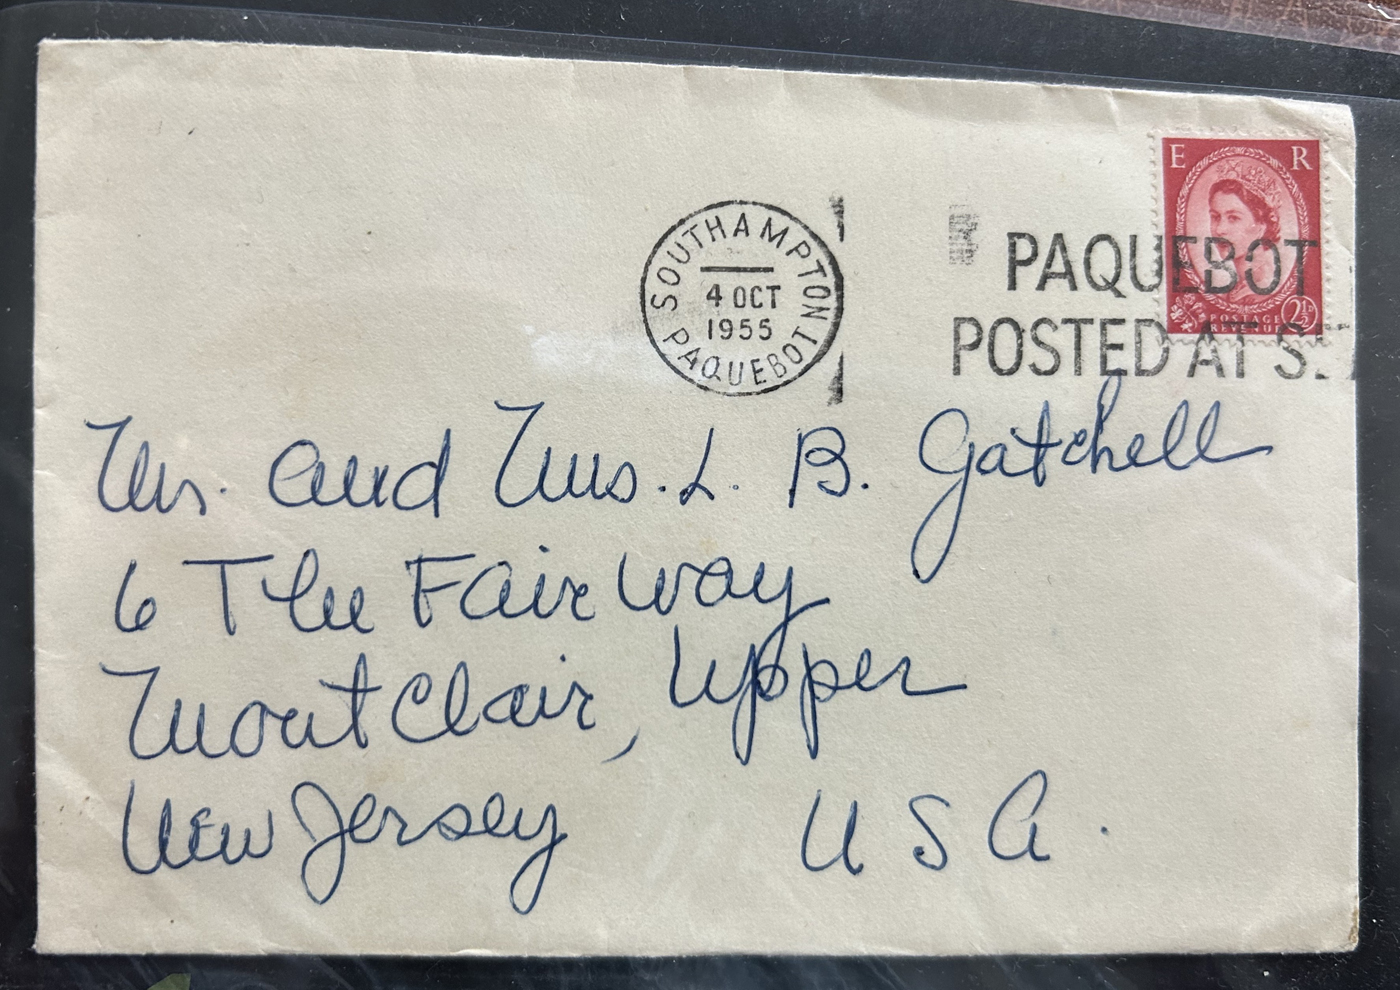 E R
SOUTHAMPTON
4 OCT
1955
PAQUEBOT
PAQUEBOT
POSTED AT S
POSTAGE
REVENUE
2½D
Mr. and Mrs. L. B. Gatchell
6 The Fairway
Montclair, Upper
New Jersey U S A.